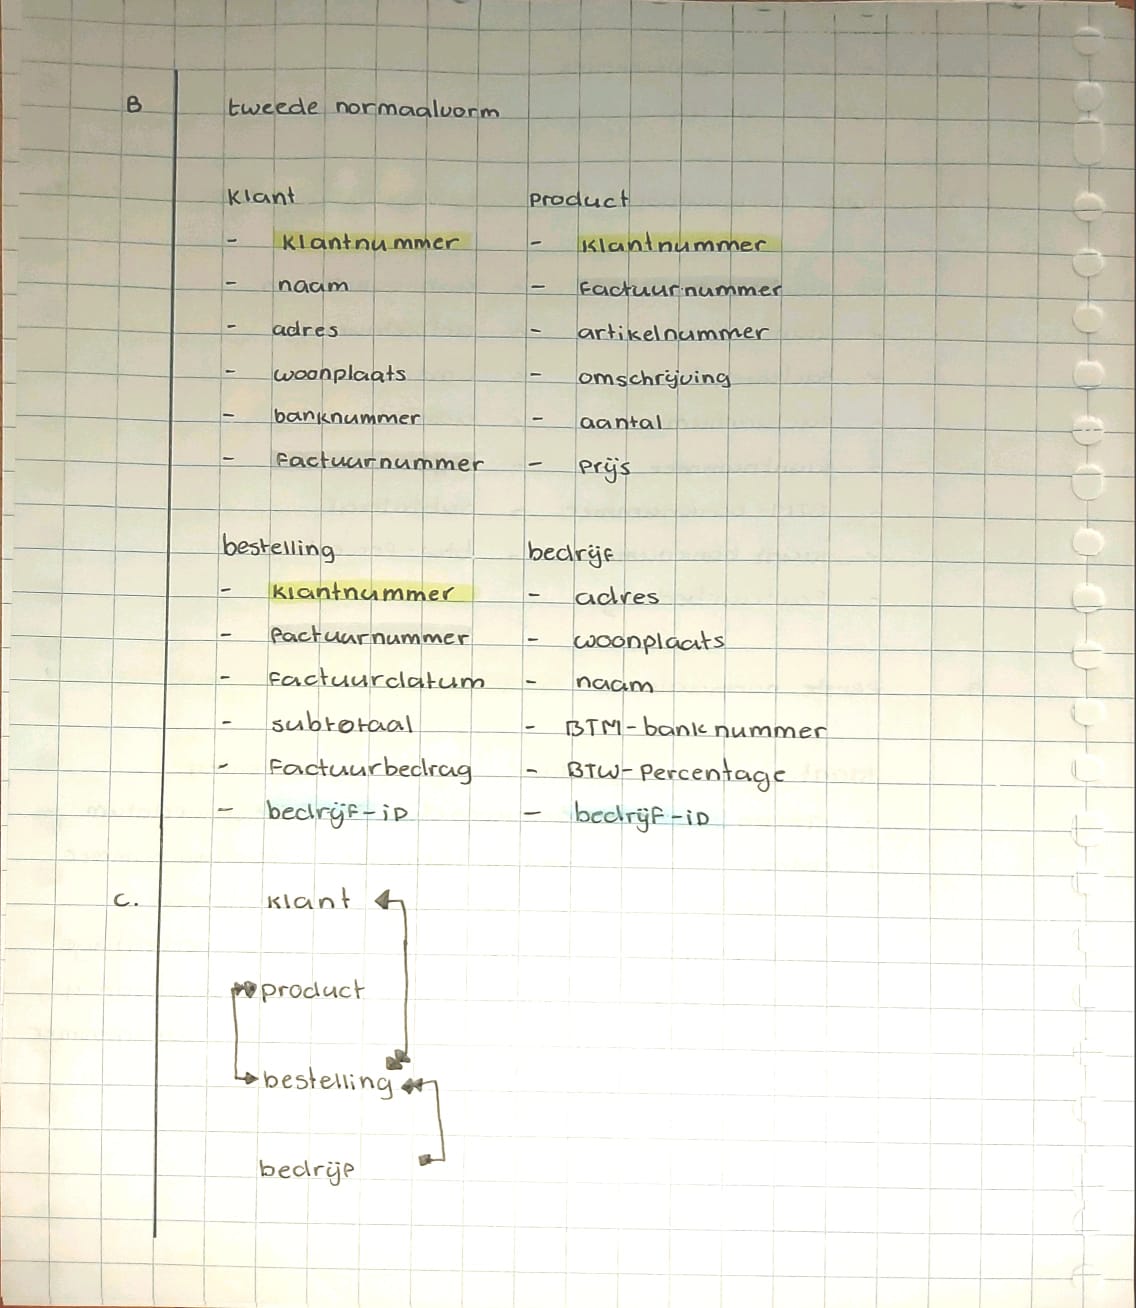 B tweede normaalvorm
Klant
- Klantnummer
- naam
- adres
- woonplaats
- banknummer
- Factuurnummer
product
- Klantnummer
- Factuurnummer
- artikelnummer
- omschrijving
- aantal
- Prijs
bestelling
- Klantnummer
- Factuurnummer
- Factuurdatum
- subtotaal
- Factuurbedrag
- bedrijf-iD
bedrijf
- adres
- woonplaats
- naam
- BTM-banknummer
- BTW-Percentage
- bedrijf-iD
C. Klant
product
bestelling
bedrijf